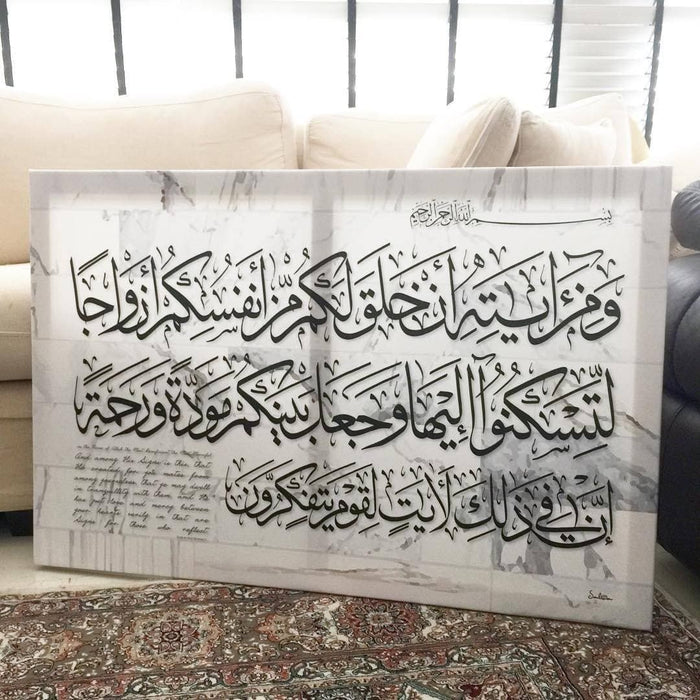 بِسْمِ اللَّهِ الرَّحْمَٰنِ الرَّحِيمِ
وَمِنْ آيَاتِهِ أَنْ خَلَقَ لَكُم مِّنْ أَنفُسِكُمْ أَزْوَاجًا
لِّتَسْكُنُوا إِلَيْهَا وَجَعَلَ بَيْنَكُم مَّوَدَّةً وَرَحْمَةً
إِنَّ فِي ذَٰلِكَ لَآيَاتٍ لِّقَوْمٍ يَتَفَكَّرُونَ
In the Name of Allah the Most
And among His Signs is this, that
He created for you mates from
among yourselves, that ye may dwell
in tranquillity with them, and He
has put love and mercy between
your hearts: verily in that are
Signs for those who reflect